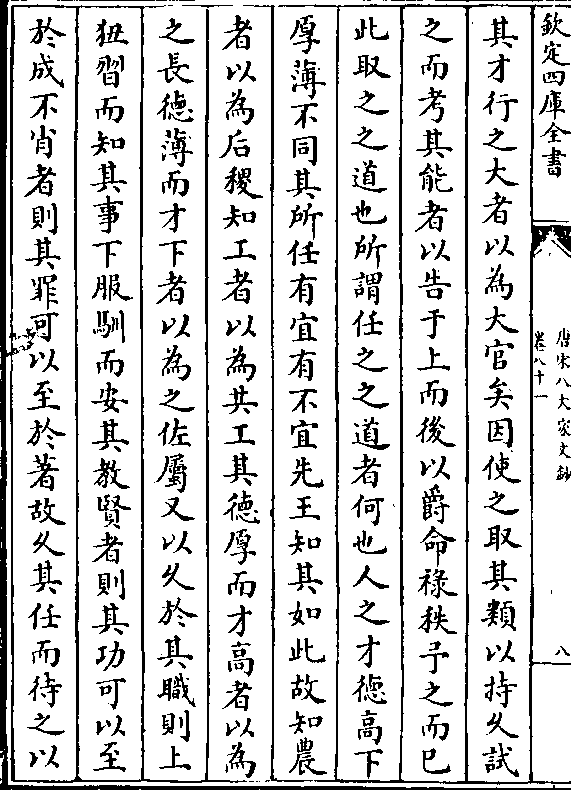 欽定四庫全書
唐宋八大家文鈔
卷八十一
八
其才行之大者以為大官矣因使之取其類以持久試
之而考其能者以告于上而後以爵命祿秩予之而已
此取之之道也所謂任之之道者何也人之才德高下
厚薄不同其所任有宜有不宜先王知其如此故知農
者以為后稷知工者以為共工其德厚而才高者以為
之長德薄而才下者以為之佐屬又以久於其職則上
狃習而知其事下服馴而安其教賢者則其功可以至
於成不肖者則其罪可以至於著故久其任而待之以